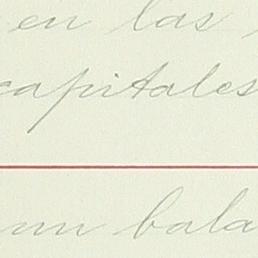 en las
capitales
un bala